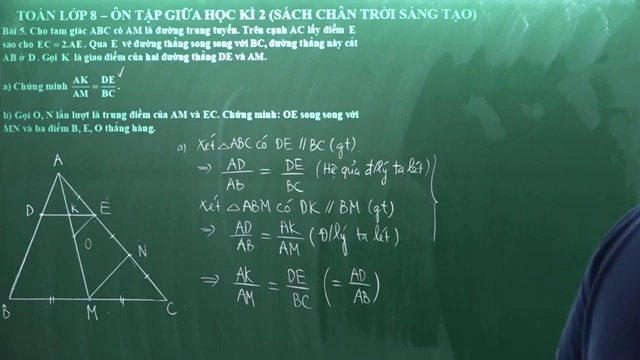 TOÁN LỚP 8 – ÔN TẬP GIỮA HỌC KÌ 2 (SÁCH CHÂN TRỜI SÁNG TẠO)
Bài 5. Cho tam giác ABC có AM là đường trung tuyến. Trên cạnh AC lấy điểm E
sao cho EC = 2.AE. Qua E vẽ đường thẳng song song với BC, đường thẳng này cắt
AB ở D. Gọi K là giao điểm của hai đường thẳng DE và AM.
a) Chứng minh AK/AM = DE/BC.
b) Gọi O, N lần lượt là trung điểm của AM và EC. Chứng minh: OE song song với
MN và ba điểm B, E, O thẳng hàng.
a) Xét △ABC có DE // BC (gt)
⇒ AD/AB = DE/BC (Hệ quả đ/lý ta lét)
Xét △ABM có DK // BM (gt)
⇒ AD/AB = AK/AM (Đ/lý ta lét)
⇒ AK/AM = DE/BC (= AD/AB)
A
D K E
O
N
B M C